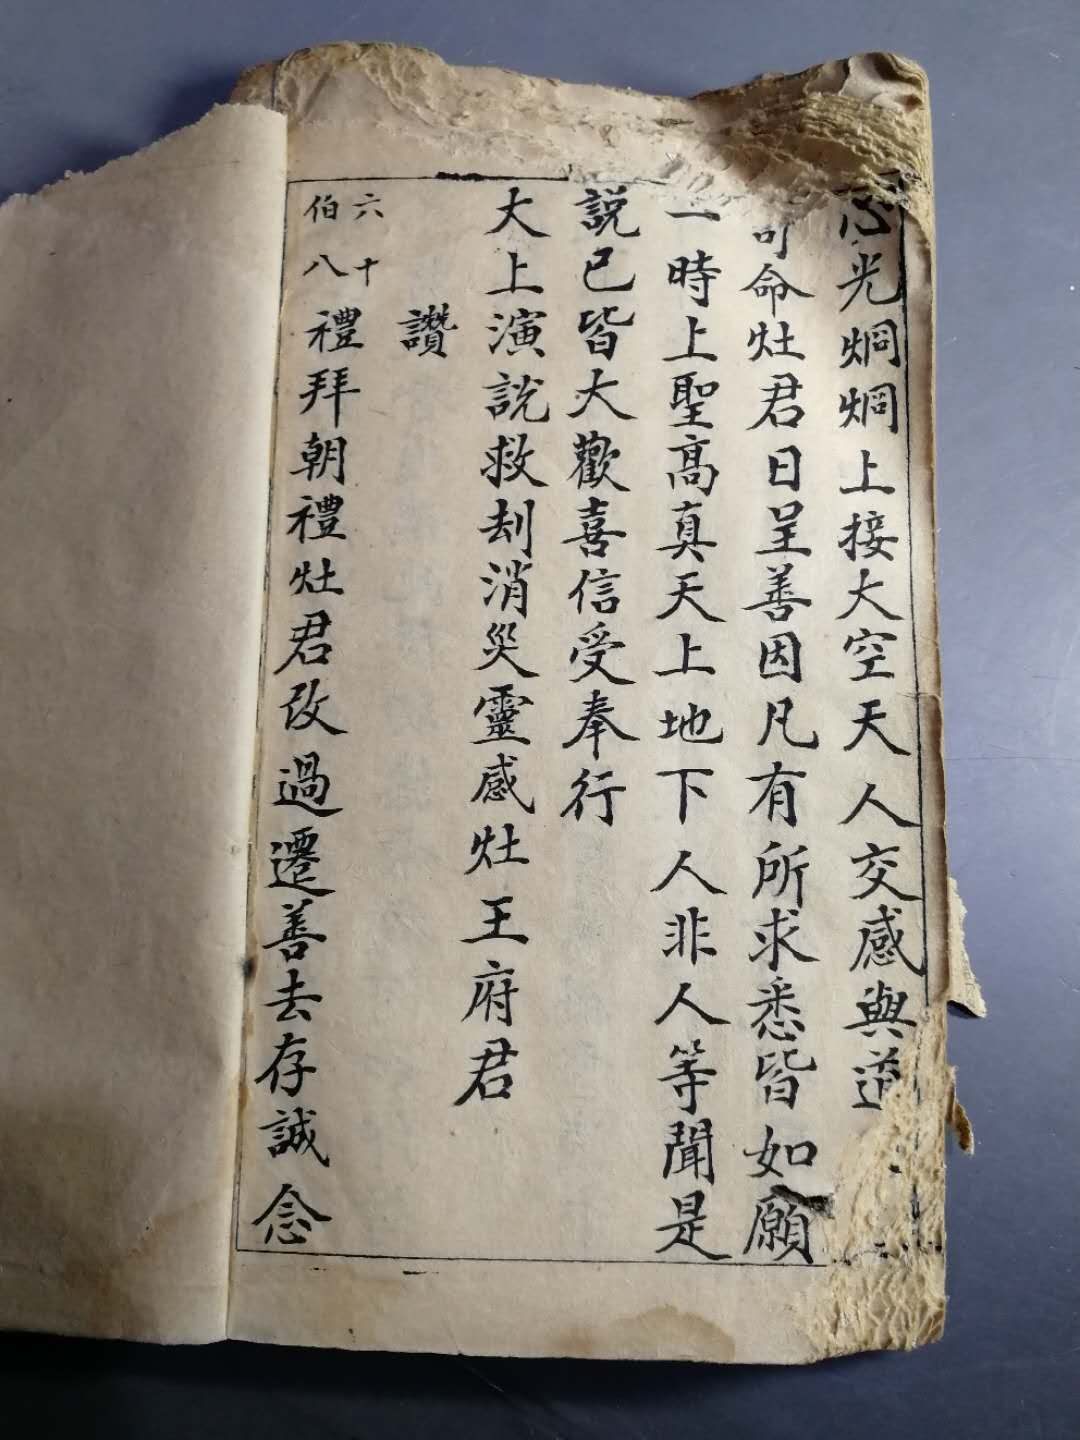 心光烱烱上接大空天人交感與道
司命灶君日呈善因凡有所求悉皆如願
一時上聖高真天上地下人非人等聞是
説已皆大歡喜信受奉行
大上演説救刦消災靈感灶王府君
讚
六十
伯八
禮拜朝禮灶君改過遷善去存誠念